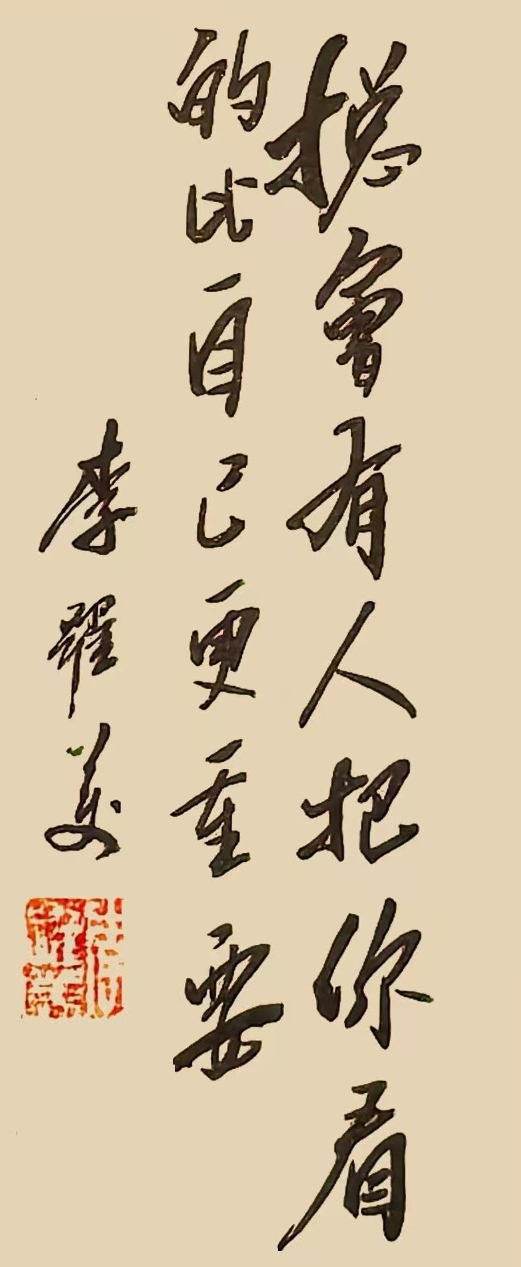 摠會有人把你看
的比自己更重要
李翟美